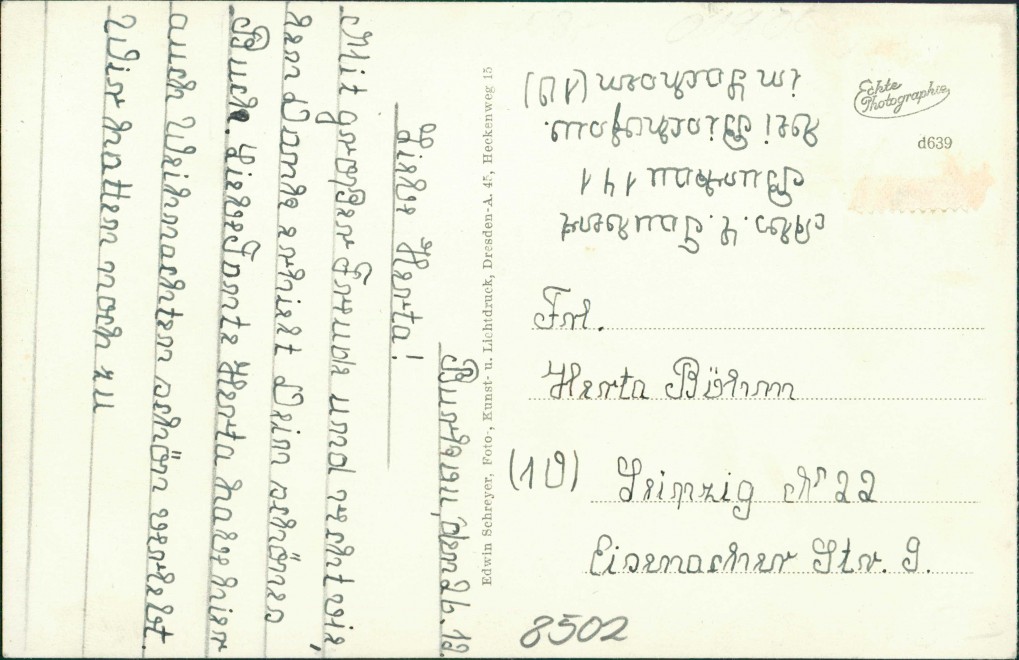 Burkau, den 26. 12.
Liebe Herta!
Mit großer Freude und recht vie,
len Dank erhielt Dein schönes
Buch. Liebe Tante Herta habe hier
auch Weihnachten schön verlebt.
Wir hatten noch zu
Edwin Schreyer, Foto-, Kunst- u. Lichtdruck, Dresden-A. 45, Heckenweg 15
Echte
Photographie
d639
Abs. H. Taubert
Burkau 141
bei Bischofsw.
in Sachsen (10)
Frl.
Herta Böhm
(10) Leipzig N 22
Eisenacher Str. 9.
8502